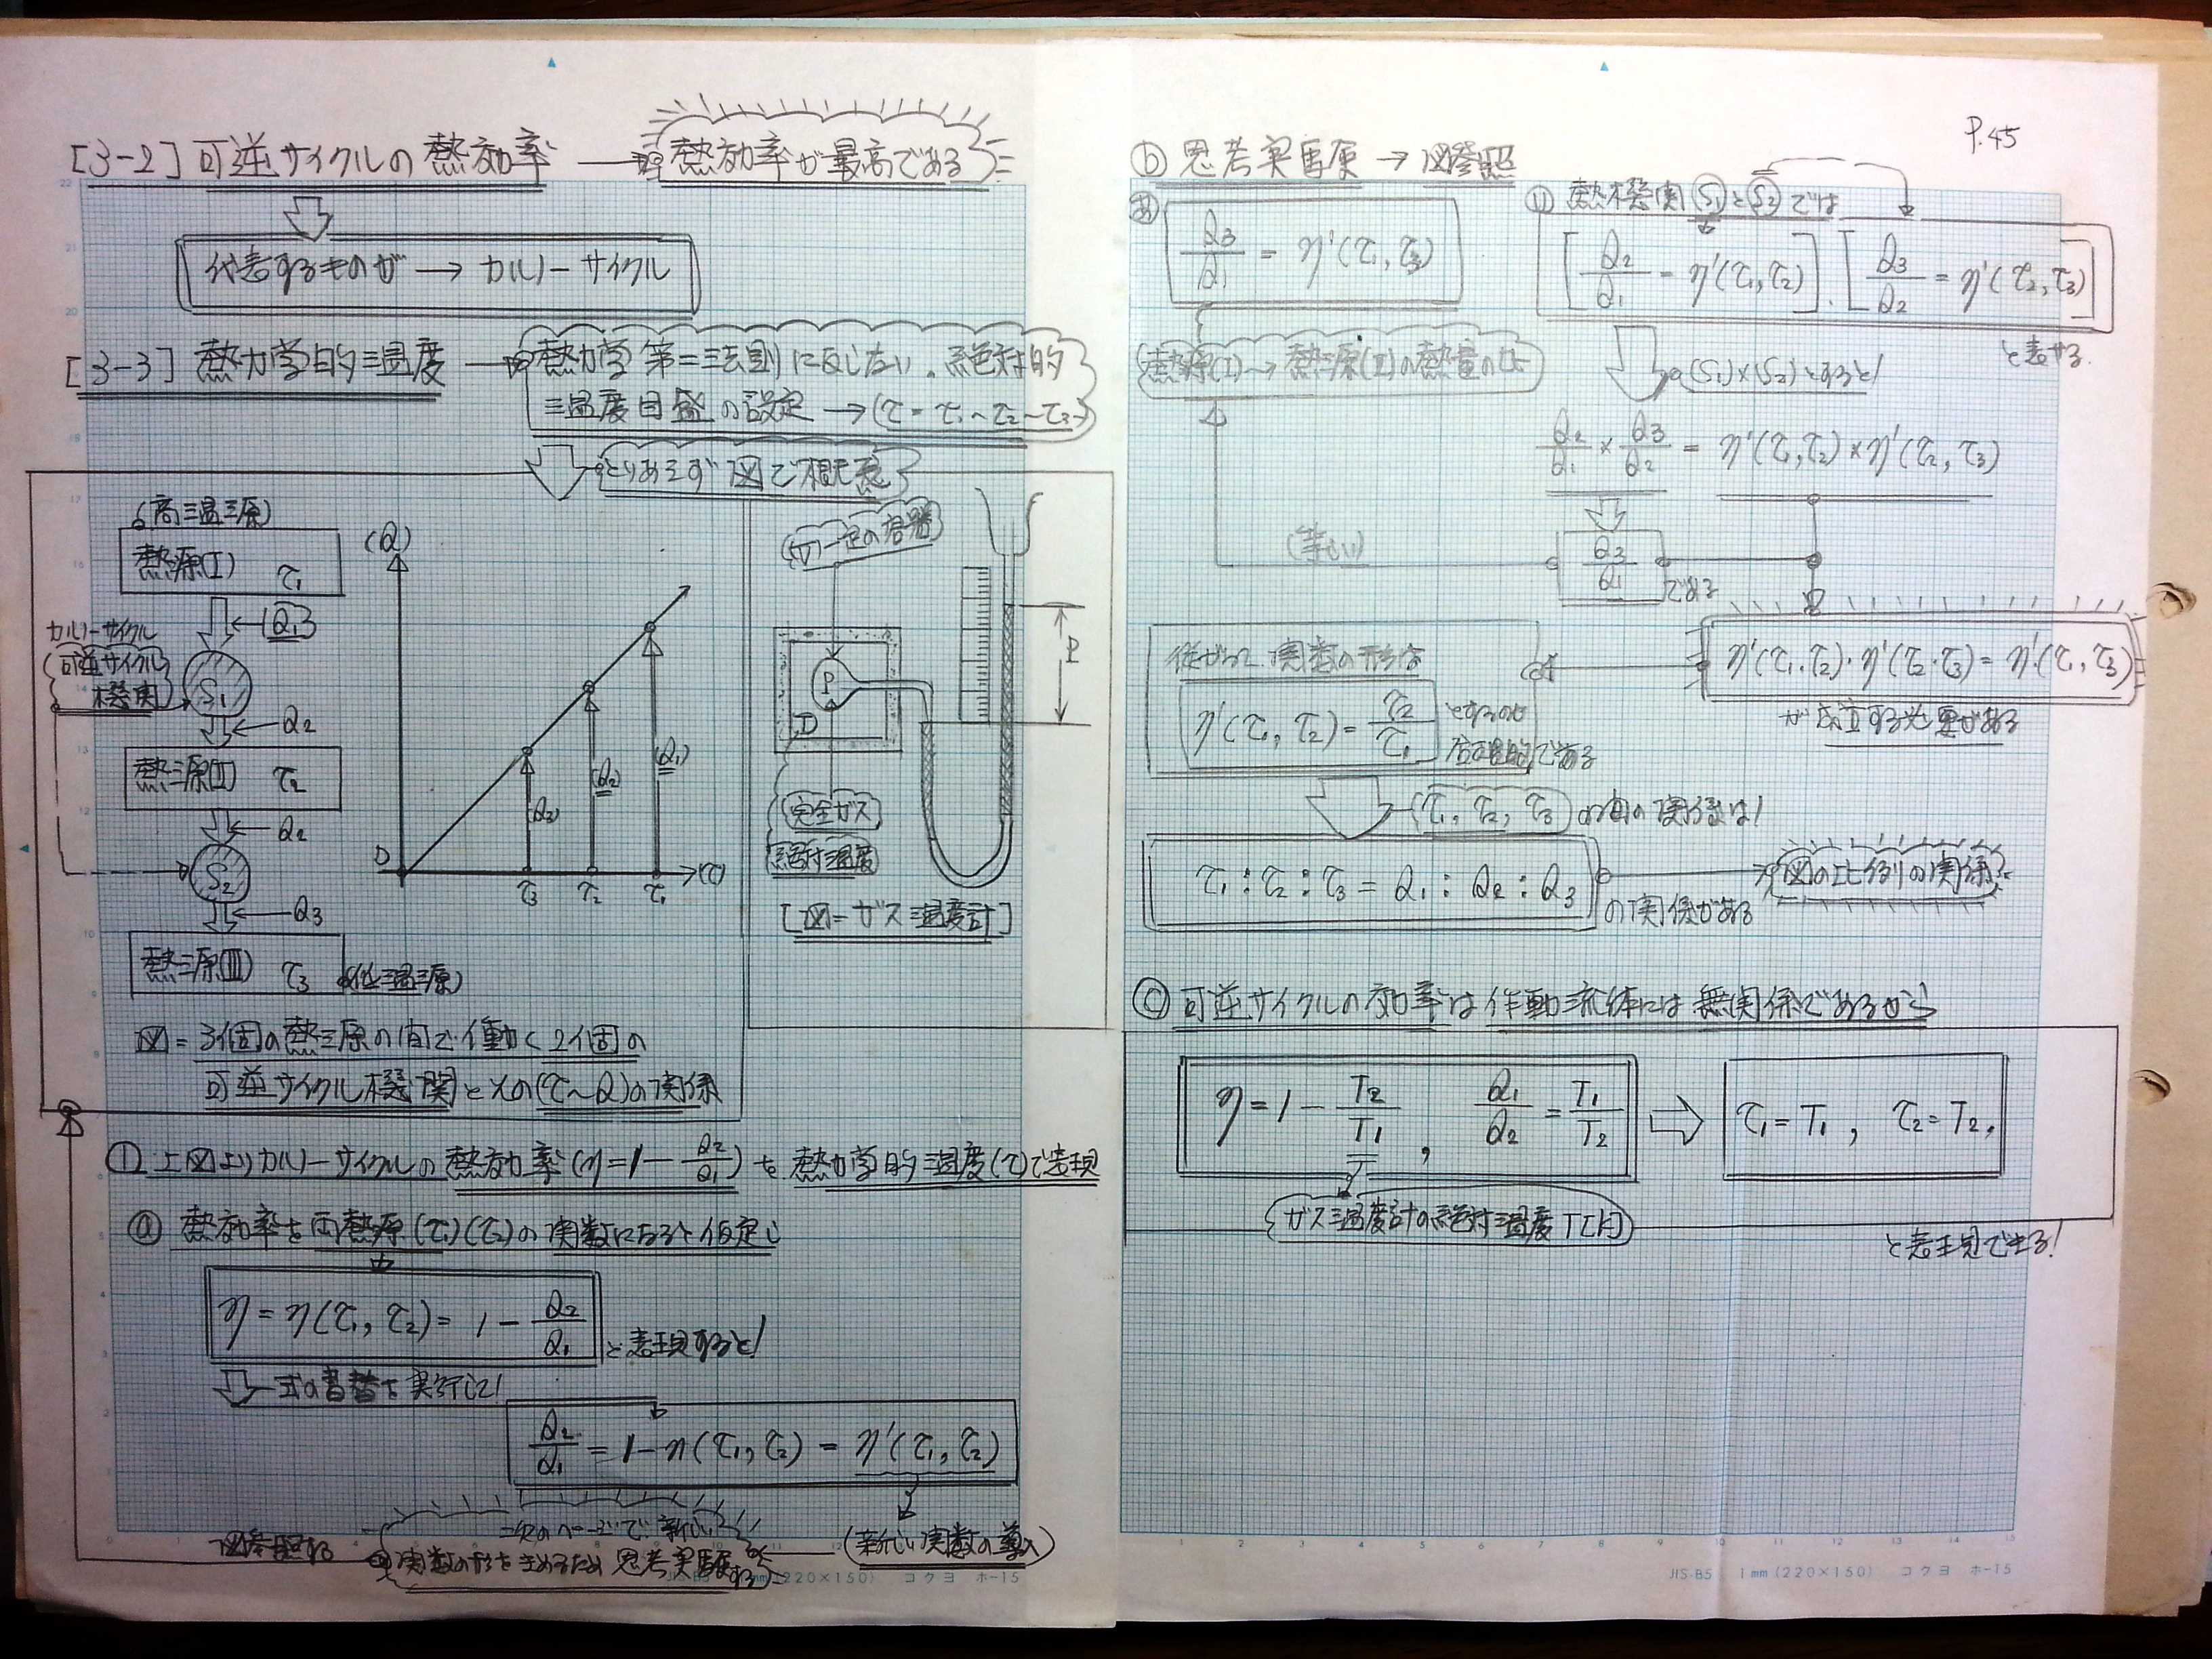 [3-2] 可逆サイクルの熱効率 → 熱効率が最高である
代表するものが → カルノーサイクル
[3-3] 熱力学的温度 → 熱力学第二法則に反しない、絶対的
温度目盛の設定 → (τ = τ₁~τ₂~τ₃)
とりあえず図で概念
(高温源)
熱源(I) τ₁
Q₁
カルノーサイクル
可逆サイクル
機関
S₁
Q₂
熱源(II) τ₂
Q₂
S₂
Q₃
熱源(III) τ₃ (低温源)
(Q)
(Q₃) (Q₂) (Q₁)
0 τ₃ τ₂ τ₁ (τ)
(V)一定の容器
P
P
完全ガス
絶対温度
[図=ガス温度計]
図=3個の熱源の間で働く2個の
可逆サイクル機関とその(τ~Q)の関係
① 上図よりカルノーサイクルの熱効率(η=1-Q₂/Q₁)を熱力学的温度(τ)で表現
ⓐ 熱効率を両熱源(τ₁)(τ₂)の関数になると仮定し
η = η(τ₁, τ₂) = 1 - Q₂/Q₁ と表現すると!
式の書替を実行して!
Q₂/Q₁ = 1-η(τ₁, τ₂) = η'(τ₁, τ₂)
(新しい関数の導入)
次のページで新しい
関数の形をきめるため思考実験する
図参照する
JIS-B5 1mm (220×150) コクヨ ホ-15
P.45
ⓑ 思考実験 → 図参照
あ Q₃/Q₁ = η'(τ₁, τ₃)
熱源(I)→熱源(III)の熱量の比
い 熱機関(S₁)と(S₂)では
[Q₂/Q₁ = η'(τ₁, τ₂)]. [Q₃/Q₂ = η'(τ₂, τ₃)]
と表せる.
(S₁)×(S₂)とすると!
Q₂/Q₁ × Q₃/Q₂ = η'(τ₁, τ₂) × η'(τ₂, τ₃)
(等しい)
Q₃/Q₁ である
η'(τ₁.τ₂)・η'(τ₂.τ₃) = η'(τ₁, τ₃)
が成立する必要がある
従がって関数の形は
η'(τ₁, τ₂) = τ₂/τ₁ とするのが
合理的である
(τ₁, τ₂, τ₃)の間の関係は!
τ₁ : τ₂ : τ₃ = Q₁ : Q₂ : Q₃
の関係がある
図の比例の関係
ⓒ 可逆サイクルの効率は作動流体には無関係であるから
η = 1 - T₂/T₁ , Q₁/Q₂ = T₁/T₂ ⇒ τ₁ = T₁ , τ₂ = T₂,
ガス温度計の絶対温度 T[K]
と表現できる!
JIS-B5 1mm (220×150) コクヨ ホ-15